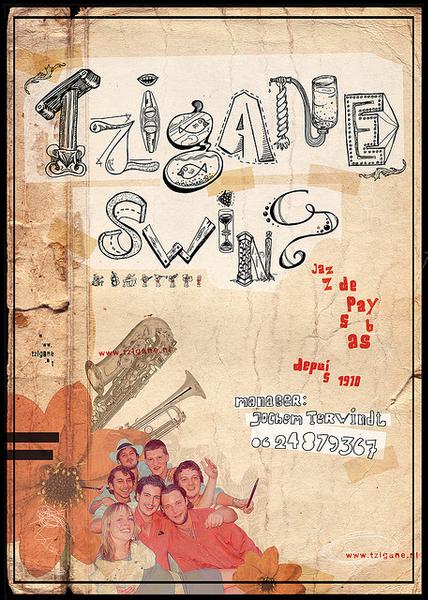 Tzigane
Swing
Jaz
z de
Pay
s b
as
depui
s 1910
www.tzigane.nl
www.
tzigane
.nl
manager:
Jochem Tervindt
06 24879367
www.tzigane.nl